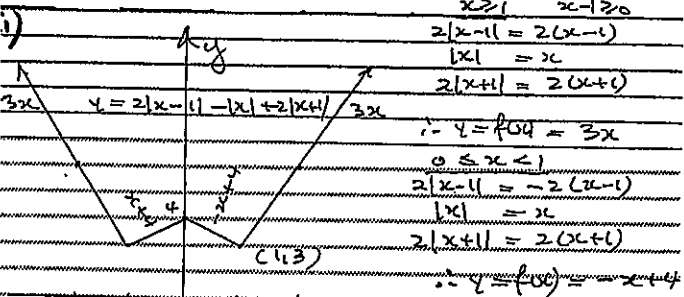 i)
y
3x
y = 2|x-1| - |x| + 2|x+1|
3x
4
-x+4
(1,3)
x≥1 x-1≥0
2|x-1| = 2(x-1)
|x| = x
2|x+1| = 2(x+1)
∴ y = f(x) = 3x
0 ≤ x < 1
2|x-1| = -2(x-1)
|x| = x
2|x+1| = 2(x+1)
∴ y = f(x) = -x+4